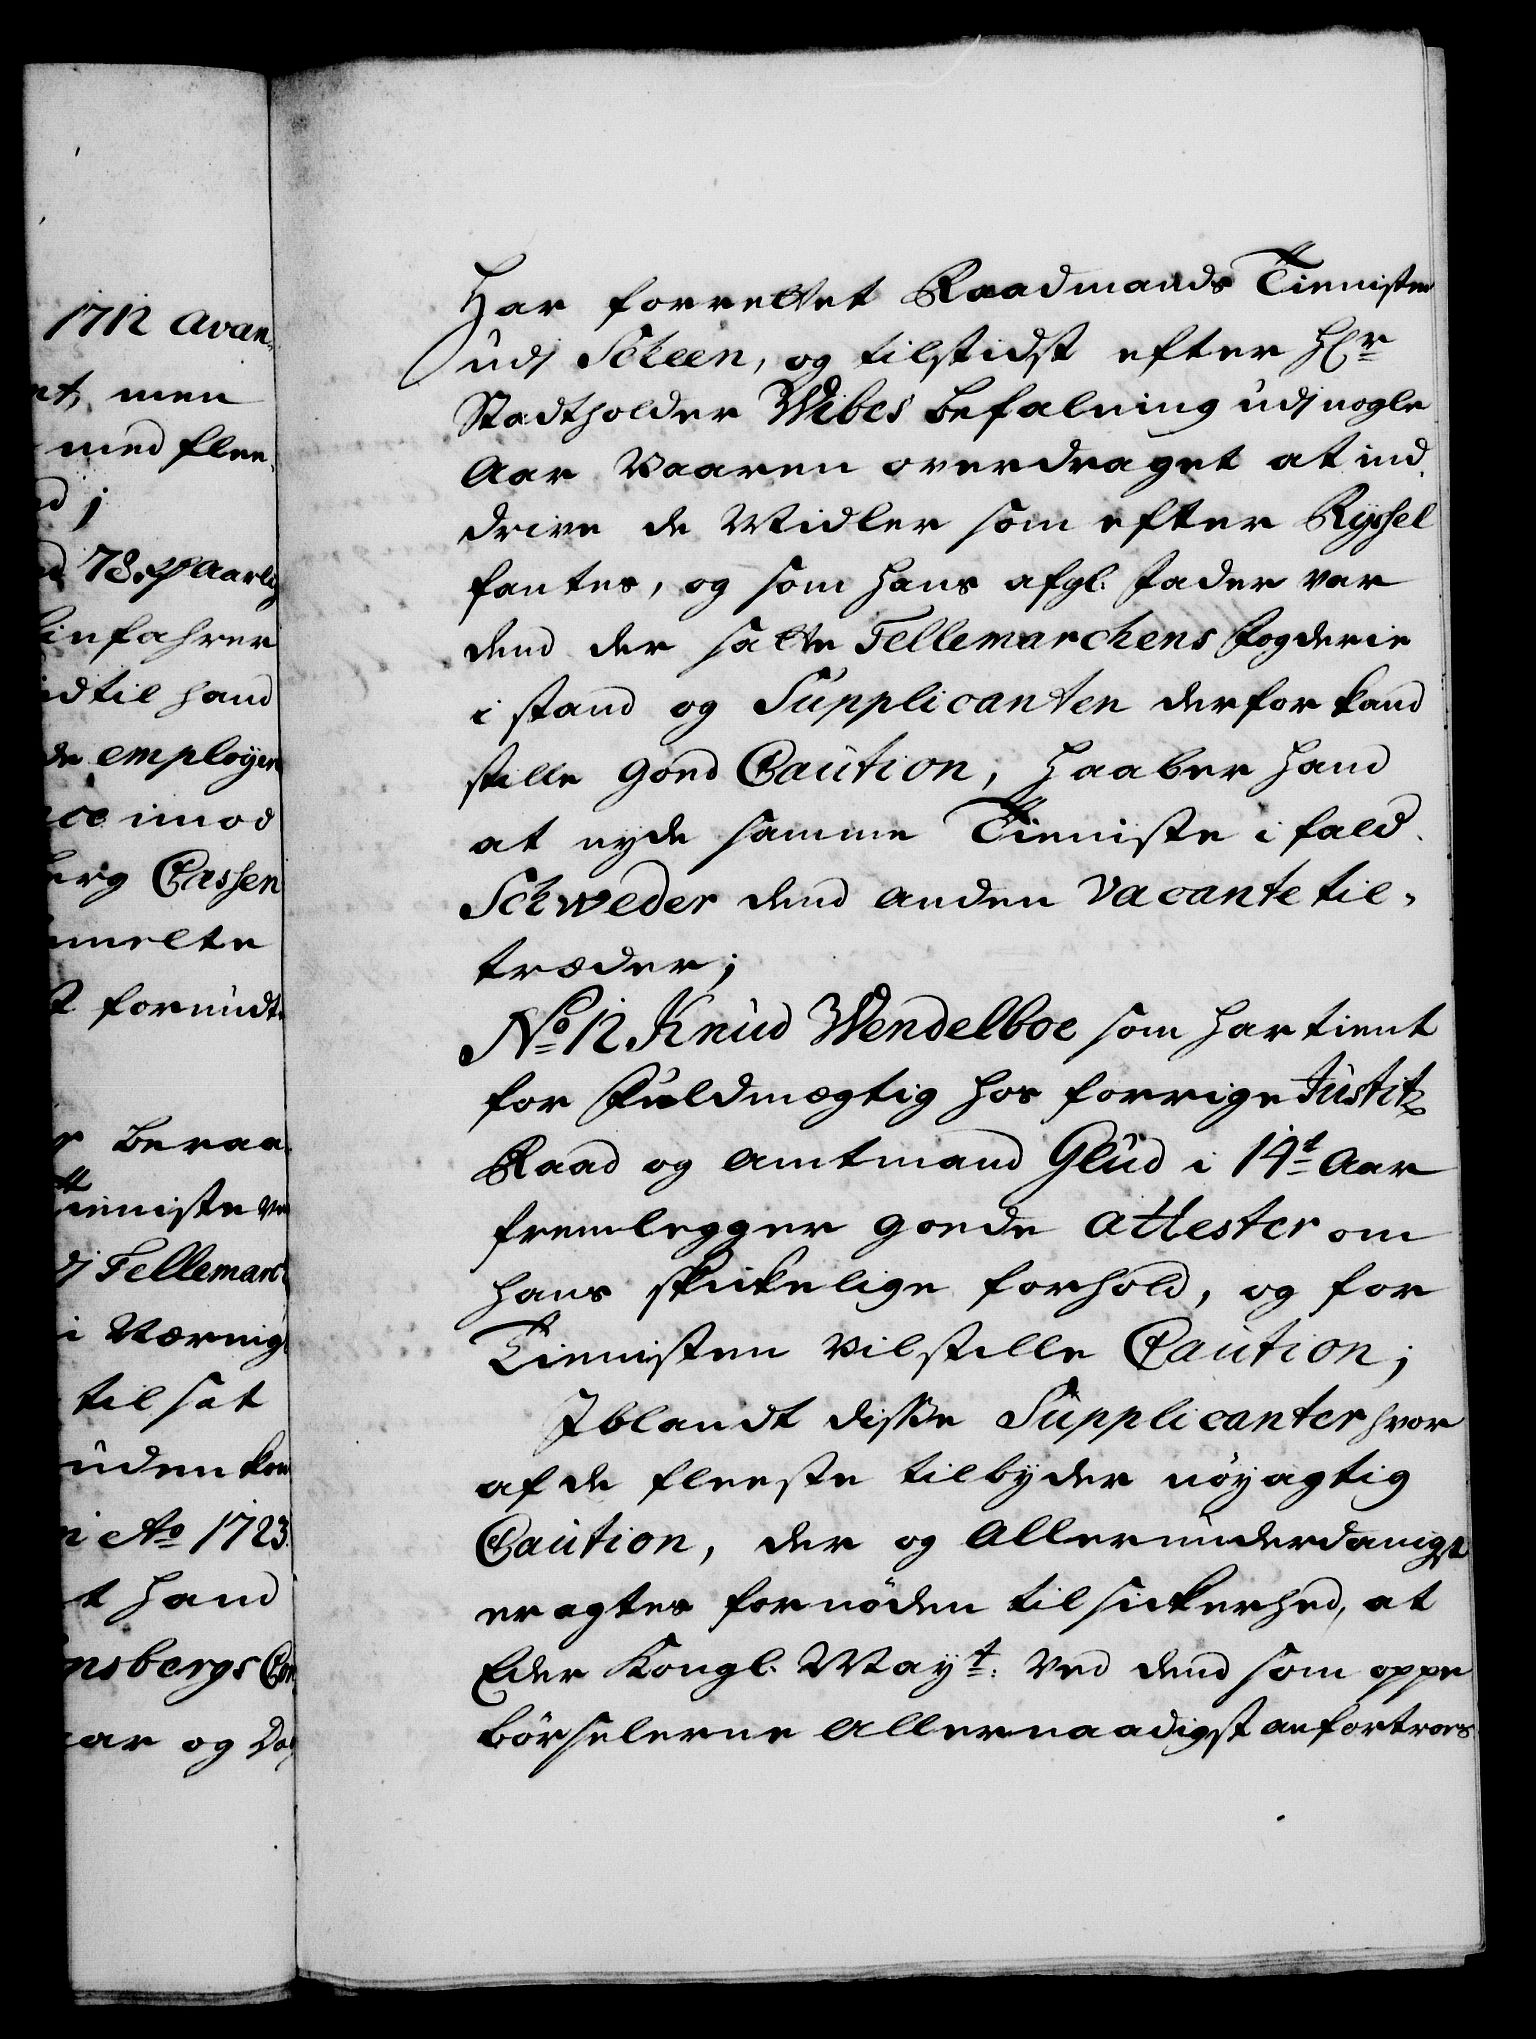 1712 avan-
nt, men
med fleer
d;
d 78 Aarlig
infahrer
ad til hand
de employer
ce imod
berg Cassen
melte
t forundt
r beraa-
Tienniste
dj Tellemarc
i Nærings
til sat
uden
i Ao 1723
t hand
nsbergs
ar og
Har forrettet Raadmands Tienisten
udj Scheen, og tilsidst efter Hr
Stadtholder Wibes befalning udj nogle
Aar Vaaren overdraget at ind-
drive de Midler som efter Ryssel
fantes, og som hans afgl. Fader var
dend der satte Tellemarchens Fogderie
i stand og Supplicanten derfor kand
stille goed Caution, haaber hand
at nyde samme Tieniste i fald
Schweder dend anden vacante til-
træder;
No 12. Knud Wendelboe som har tient
for Fuldmægtig hos forrige Justitz
Raad og amtmand Glud i 14t Aar
fremlegger goede attester om
hans skickelige forhold, og for
Tienisten vil stille Caution;
Iblandt disse Supplicanter hvor
af de fleeste tilbyder nöyagtig
Caution, der og allerunderdanigst
eragtes fornöden til sickerhed, at
Eder Kongl. Mayt: ved dend som oppe
börselerne allernaadigst anfortroes